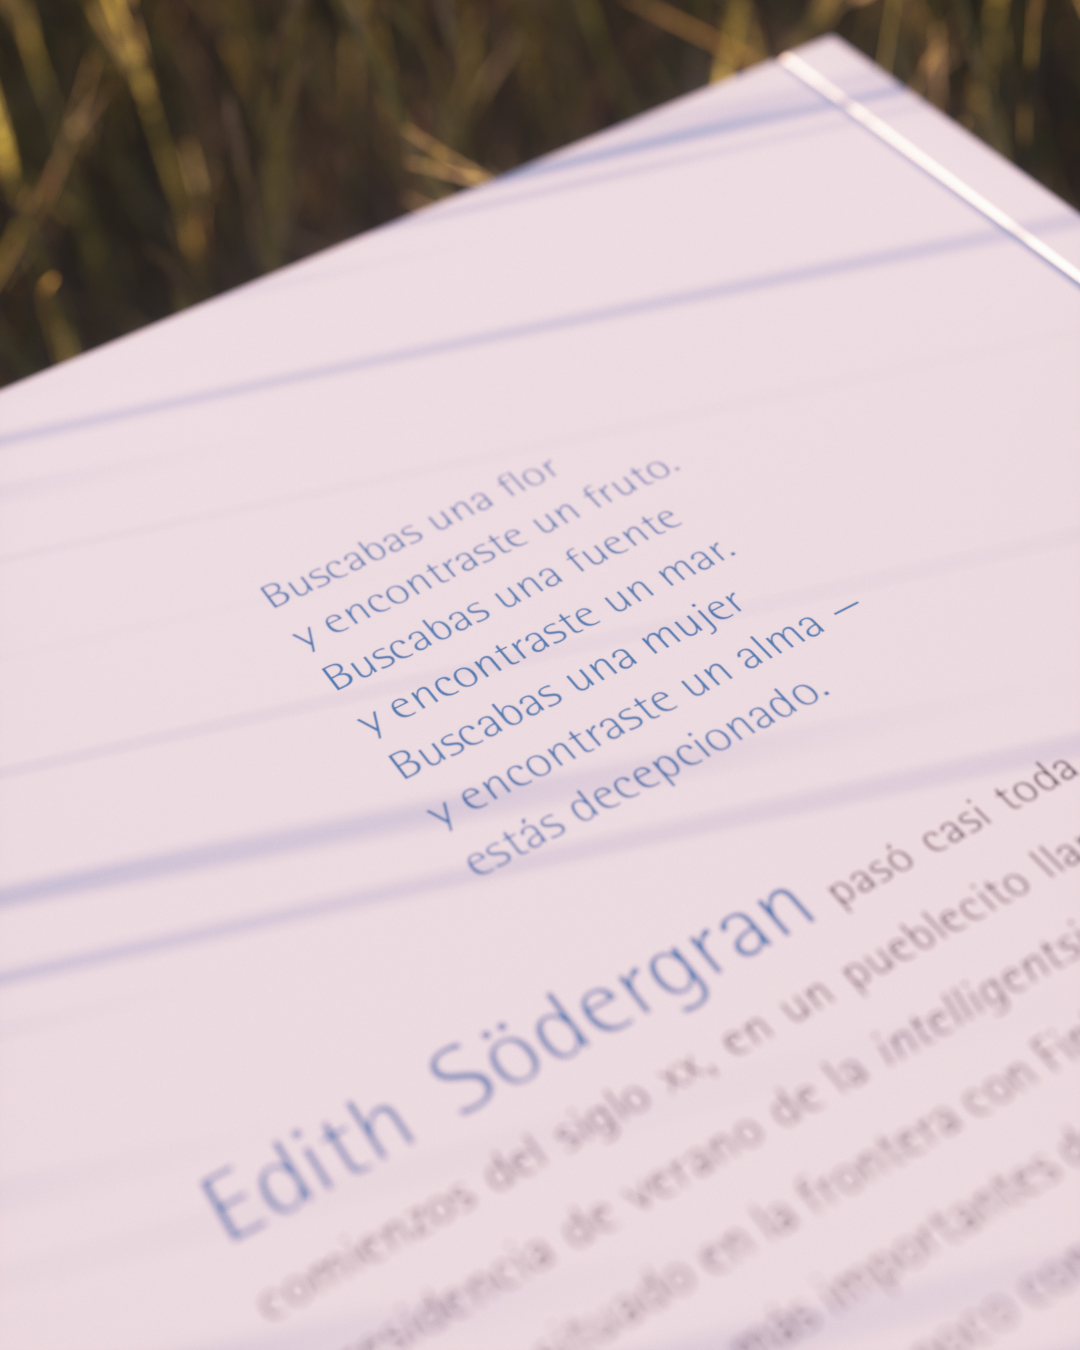 Buscabas una flor
y encontraste un fruto.
Buscabas una fuente
y encontraste un mar.
Buscabas una mujer
y encontraste un alma —
estás decepcionado.
Edith Södergran pasó casi toda
comienzos del siglo XX, en un pueblecito
residencia de verano de la
situado en la frontera con
más importantes